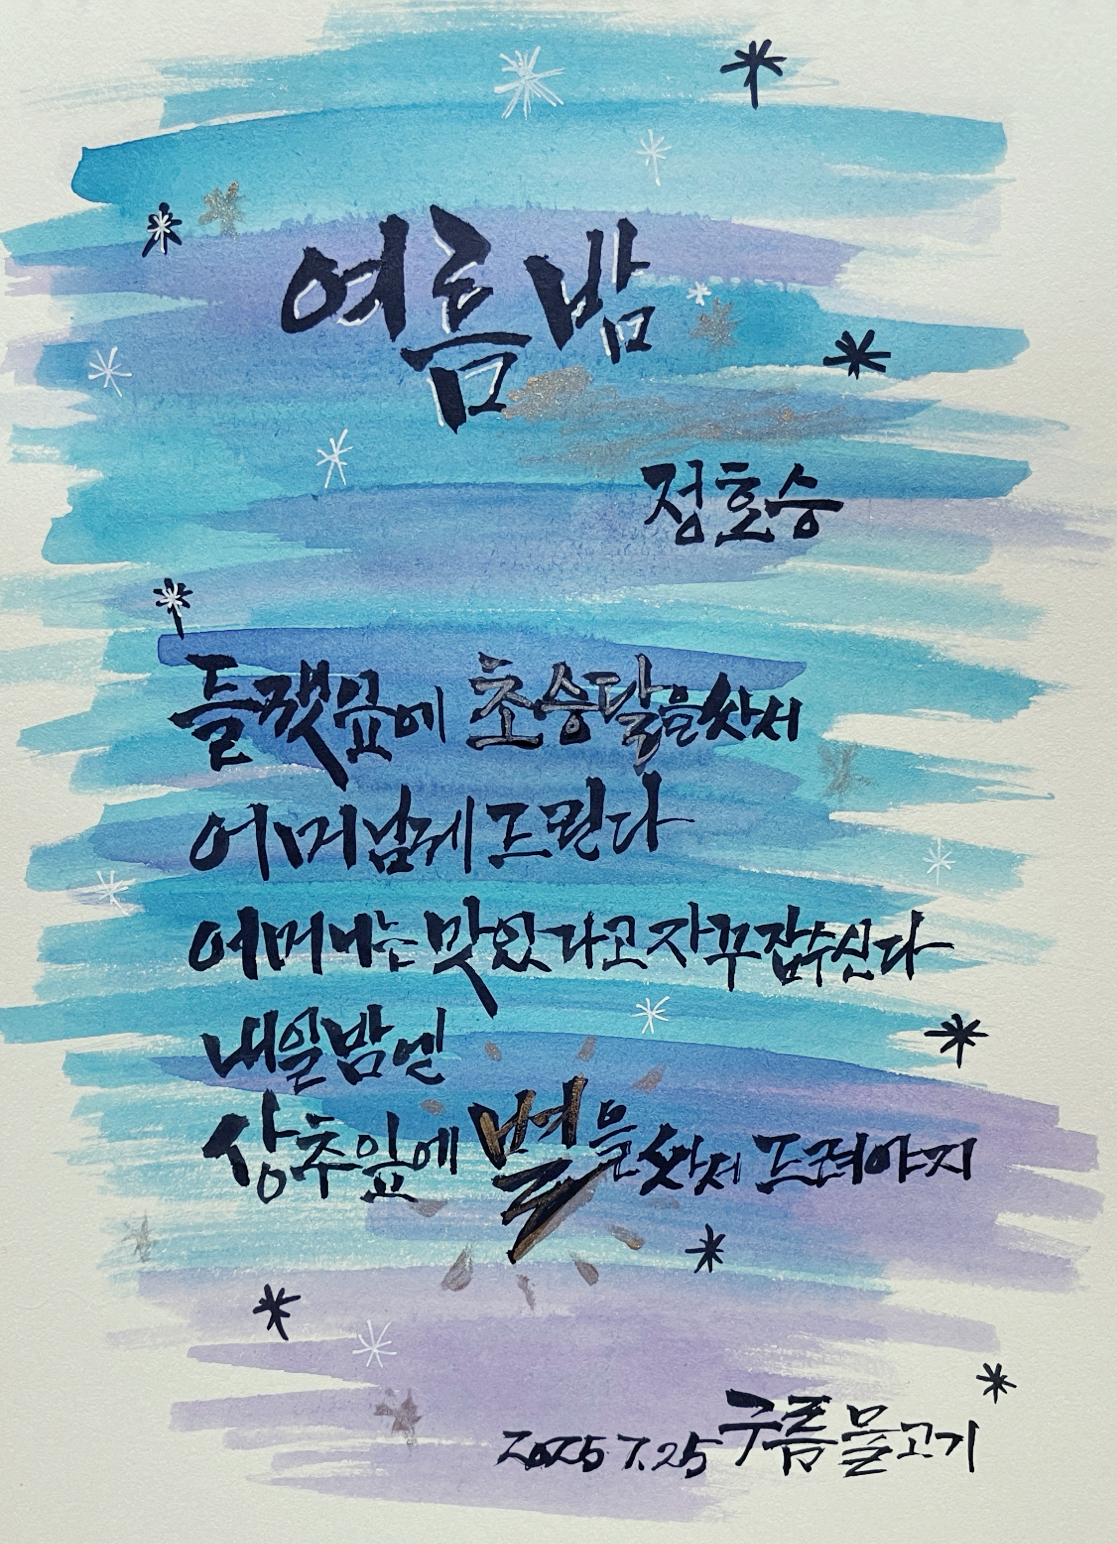 여름밤
정호승
들깻잎에 초승달을 싸서
어머님께 드린다
어머니는 맛있다고 자꾸 잡수신다
내일 밤엔
상추잎에 별을 싸서 드려야지
2025 7.25 구름물고기